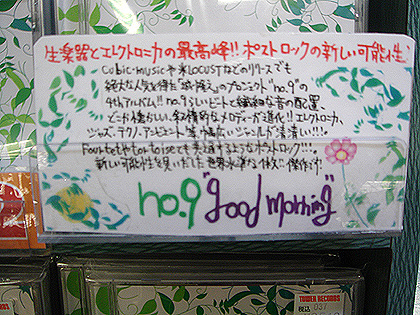 生楽器とエレクトロニカの最高峰!! ポストロックの新しい可能性
cubic-musicや米LOCUSTなどのリリースでも
絶大な人気を得た 城 隆之のプロジェクト "no.9"の
4thアルバム!! no.9らしいビートと繊細な音の配置、
どこか懐かしい、叙情的なメロディーが進化!! エレクトロニカ、
ジャズ、テクノ、アンビエント等幅広いジャンルが
Four tetやtortoiseとも
新しい可能性を見いだした世界水準な1枚!! 傑作です!
no.9 "good morning"
TOWER RECORDS
税込
TOWER RECORDS